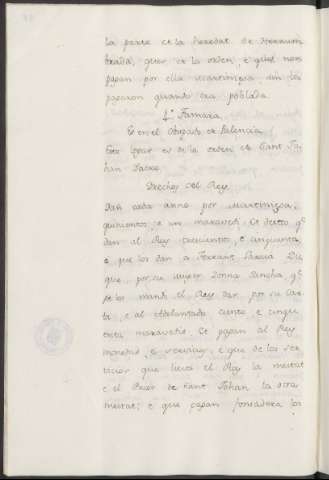 la parte et la heredat de Herrum
brada, que es la orden, e quel non
pagan por ella martiniega, nin los
pagaron quando era poblada
4.º Famara.
Es en el Obispado de Palencia
Este logar es de la orden de Sant Jo
han Sacre.
Drechos del Rey
Dan cada anno por Martiniega,
quinientos e un maravedi. Et desto q.e
dan al Rey trecientos, e cinquenta
e que los dan a Ferrant Garcia Du
que, por su mujer Donna Sancha, q.e
se los mandó el Rey dar por su car
ta, e al Adelantado ciento, e cinqu
enta maravedis. Et pagan al Rey
monedas, e servicios, e que de los ser
vicios que lieva el Rey la meitat
e el Prior de Sant Johan la otra
meitat: e que pagan fonsadera los